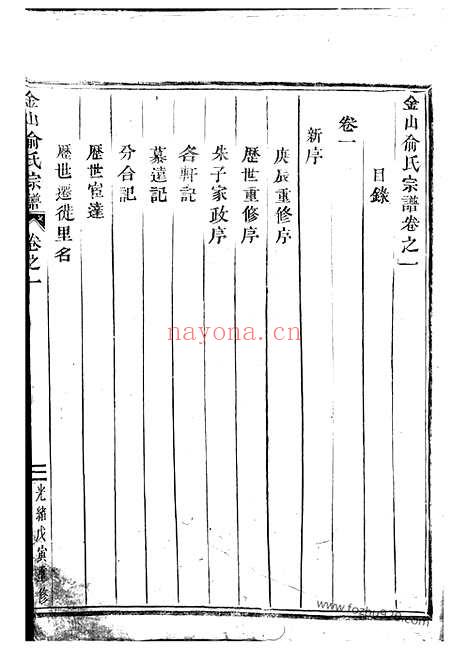 金山俞氏宗譜卷之一
目錄
卷一
新序
庚辰重修序
歷世重修序
朱子家政序
各軒記
墓誌記
分合記
歷世宦達
歷世遷徙里名
金山俞氏宗譜
卷之一
一
光緒戊寅重修
nayona.cn